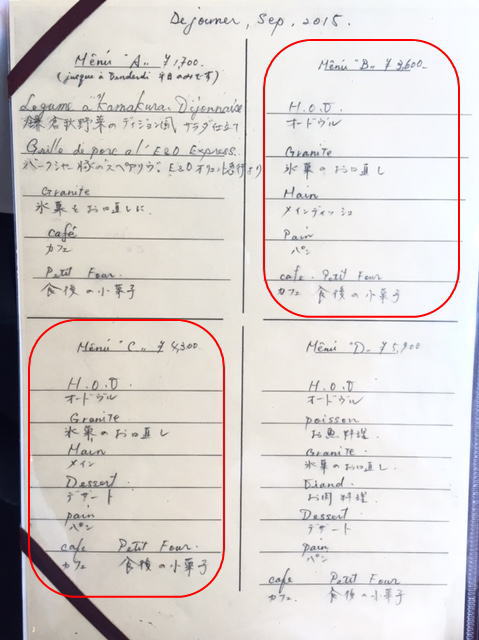 Dejouner, Sep, 2015.
Mênu "A" ¥1,700
(jusque à Danderdi 平日のみです)
Legume à Kamakura Dijonnaise
鎌倉秋野菜のディジョン風 サラダ仕立て
Grille de porc a l' E&O Express.
バークシャー豚のスペアリブ。E&Oオリエント急行より
Granite
氷菓をお口直しに
café
カフェ
Petit Four.
食後の小菓子
Mênu "B" ¥3,600-
H.O.D.
オードヴル
Granite
氷菓のお口直し
Main
メインディッシュ
Pain
パン
cafe. Petit Four
カフェ 食後の小菓子
Mênu "C" ¥4,300
H.O.D
オードヴル
Granite.
氷菓のお口直し
Main
メイン
Dessert
デザート
pain
パン
cafe Petit Four.
カフェ 食後の小菓子
Mênu "D" ¥5,900
H.O.D
オードヴル
poisson
お魚料理.
Granite
氷菓のお口直し.
Diand
お肉料理.
Dessert
デザート
pain
パン
cafe Petit Four
カフェ. 食後の小菓子